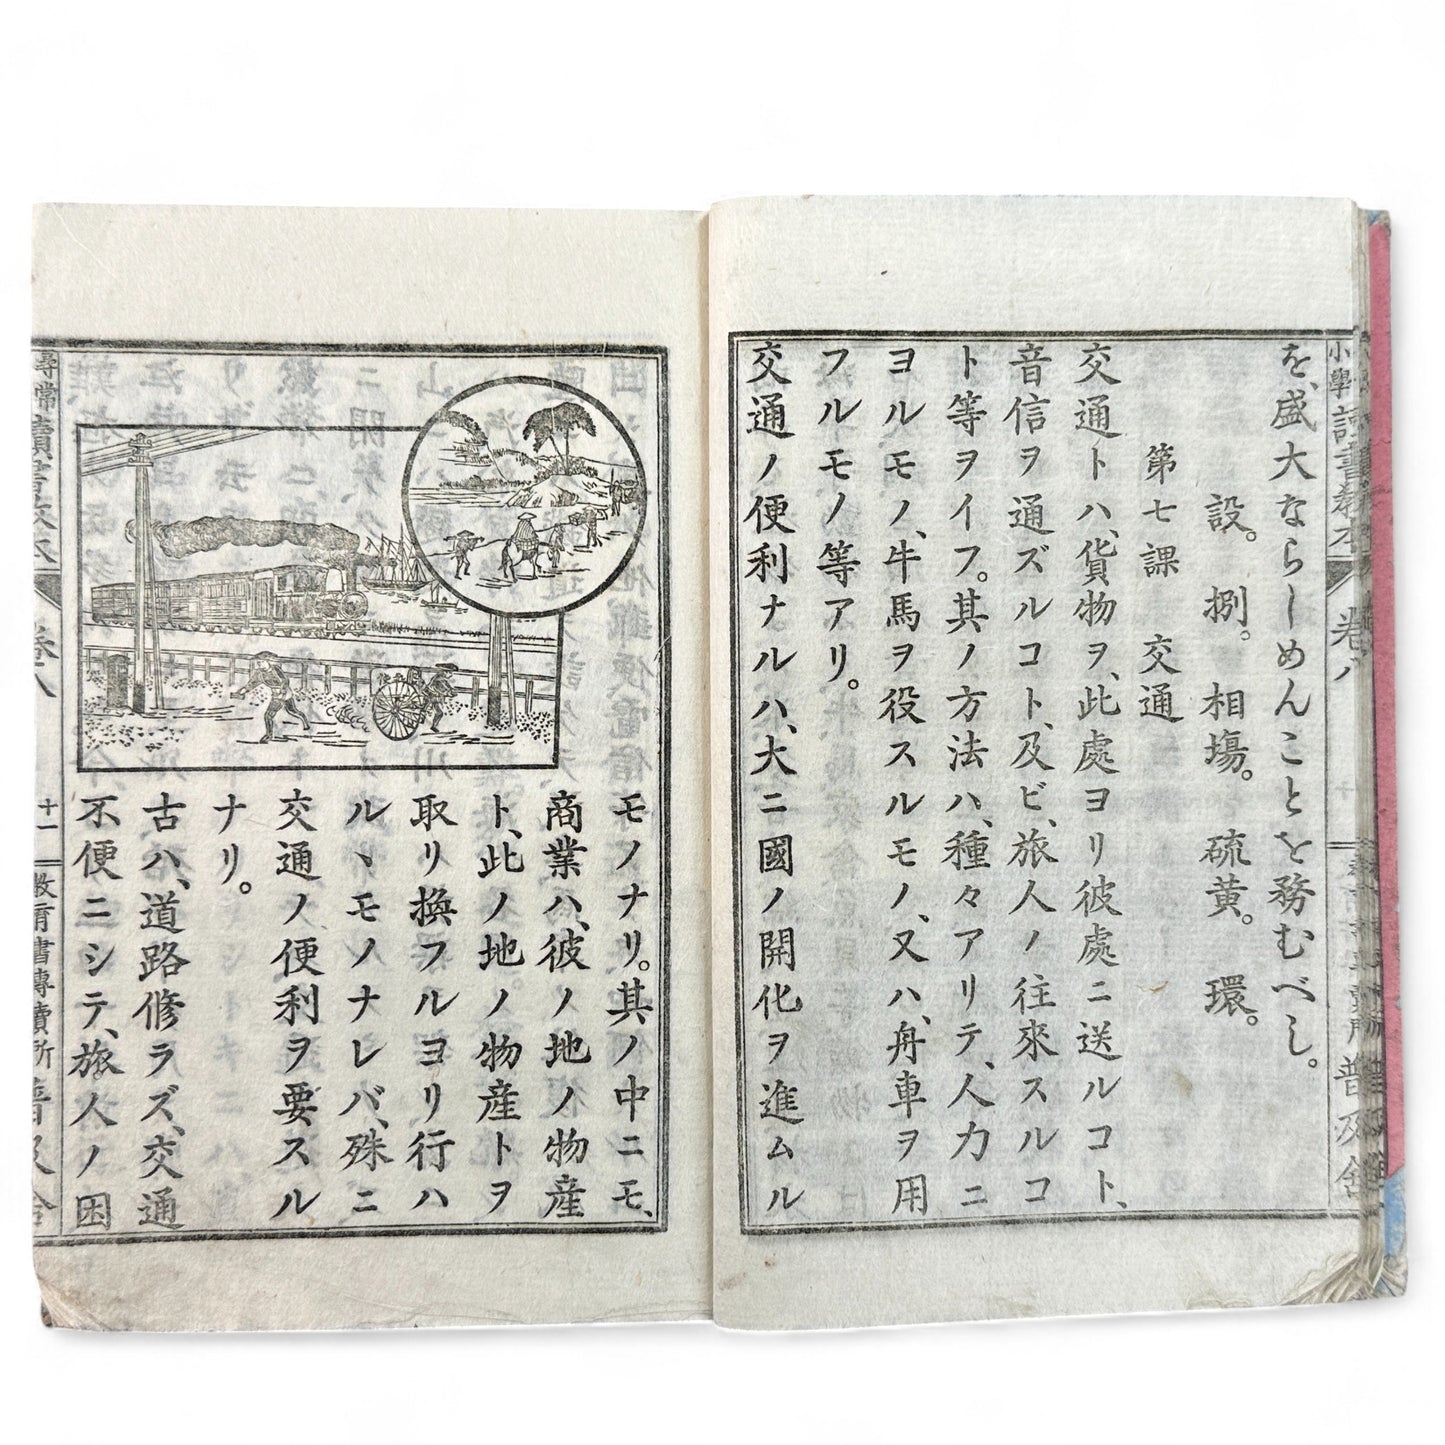 を、盛大ならしめんことを務むべし。
設。捌。相塲。硫黄。環。
第七課　交通
交通トハ、貨物ヲ、此處ヨリ彼處ニ送ルコト、
音信ヲ通ズルコト、及ビ、旅人ノ往來スルコ
ト等ヲイフ。其ノ方法ハ、種々アリテ、人力ニ
ヨルモノ、牛馬ヲ役スルモノ、又ハ、舟車ヲ用
フルモノ等アリ。
交通ノ便利ナルハ、大ニ國ノ開化ヲ進ムル
モノナリ。其ノ中ニモ、
商業ハ、彼ノ地ノ物産
ト、此ノ地ノ物産トヲ
取リ換フルヨリ行ハ
ルヽモノナレバ、殊ニ
交通ノ便利ヲ要スル
ナリ。
古ハ、道路修ラズ、交通
不便ニシテ、旅人ノ困
尋常
十一